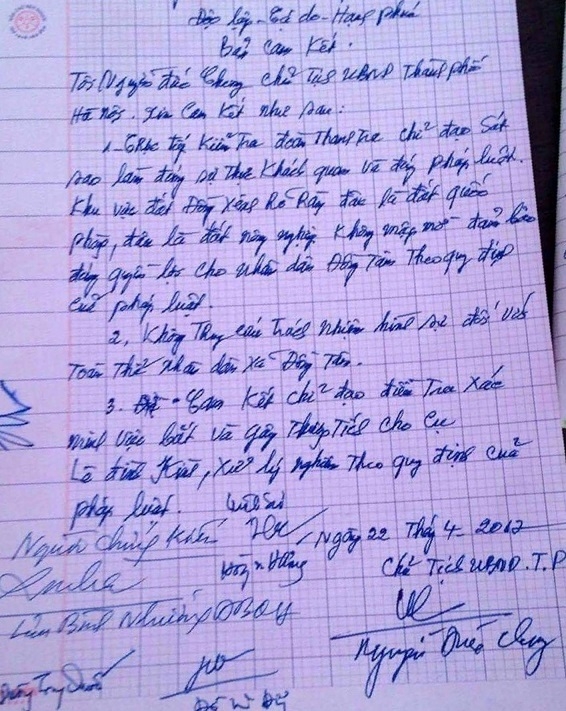 Độc lập - Tự do - Hạnh phúc
Bản Cam Kết.
Tôi Nguyễn Đức Chung chủ Tịch UBND Thành phố
Hà Nội. Xin Cam Kết như sau:
1. Trực tiếp Kiểm Tra đoàn Thanh Tra chỉ đạo Sát
sao làm đúng sự Thật Khách quan và đúng pháp luật.
Khu vực đất Đồng Sênh Rõ Ràng đâu là đất quốc
phòng, đâu là đất nông nghiệp. Không mập mờ đảm bảo
đúng quyền lợi cho nhân dân Đồng Tâm Theo quy định
của pháp luật.
2, Không Truy cứu Trách nhiệm hình sự đối với
Toàn Thể Nhân dân Xã Đồng Tâm.
3. Cam Kết chỉ đạo điều Tra Xác
minh việc bắt và gây Thương Tích cho Cụ
Lê Đình Kình, Xử lý nghiêm Theo quy định của
pháp luật.
Người chứng kiến Ngày 22 Tháng 4 - 2017
Chủ Tịch UBND. T.P
Lưu Bình Nhưỡng ĐBQH
Nguyễn Đức Chung
Dương Trung Quốc